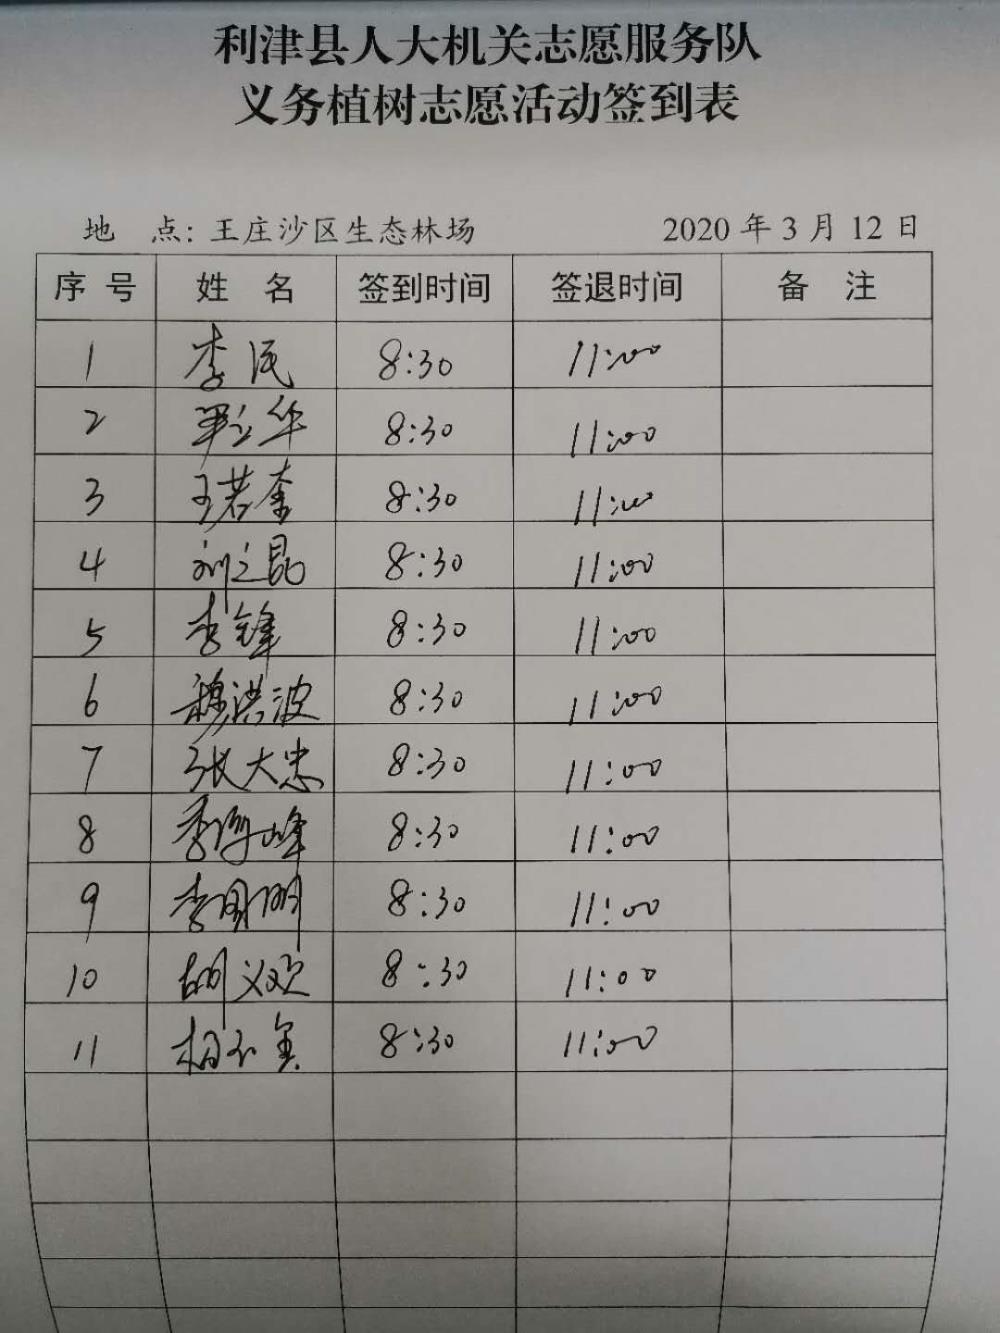 利津县人大机关志愿服务队
义务植树志愿活动签到表
地 点：王庄沙区生态林场 2020 年 3 月 12 日
序 号 姓 名 签到时间 签退时间 备 注
1 李民 8:30 11:00
2 8:30 11:00
3 王若奎 8:30 11:00
4 刘之昆 8:30 11:00
5 李锋 8:30 11:00
6 穆洪波 8:30 11:00
7 张大忠 8:30 11:00
8 8:30 11:00
9 李国明 8:30 11:00
10 胡义欢 8:30 11:00
11 8:30 11:00